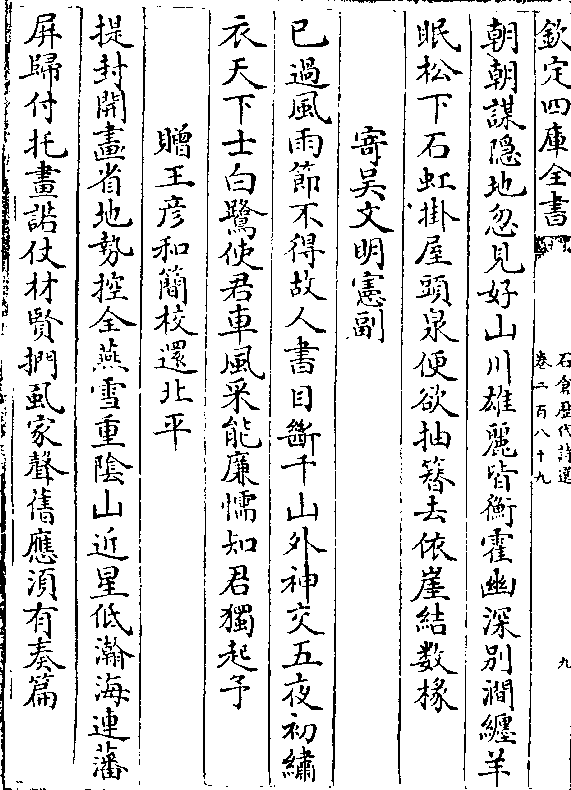 欽定四庫全書
石倉歴代詩選
卷二百八十九
九
朝朝謀隠地忽見好山川雄麗皆衡霍幽深別澗纒羊
眠松下石虹掛屋頭泉便欲抽簪去依崖結数椽
寄吳文明憲副
已過風雨節不得故人書目斷千山外神交五夜初繡
衣天下士白鷺使君車風采能廉懦知君獨起予
贈王彦和簡校還北平
提封開畫省地勢控全燕雪重陰山近星低瀚海連藩
屏歸付托畫諾仗材賢捫虱家聲舊應湏有奏篇